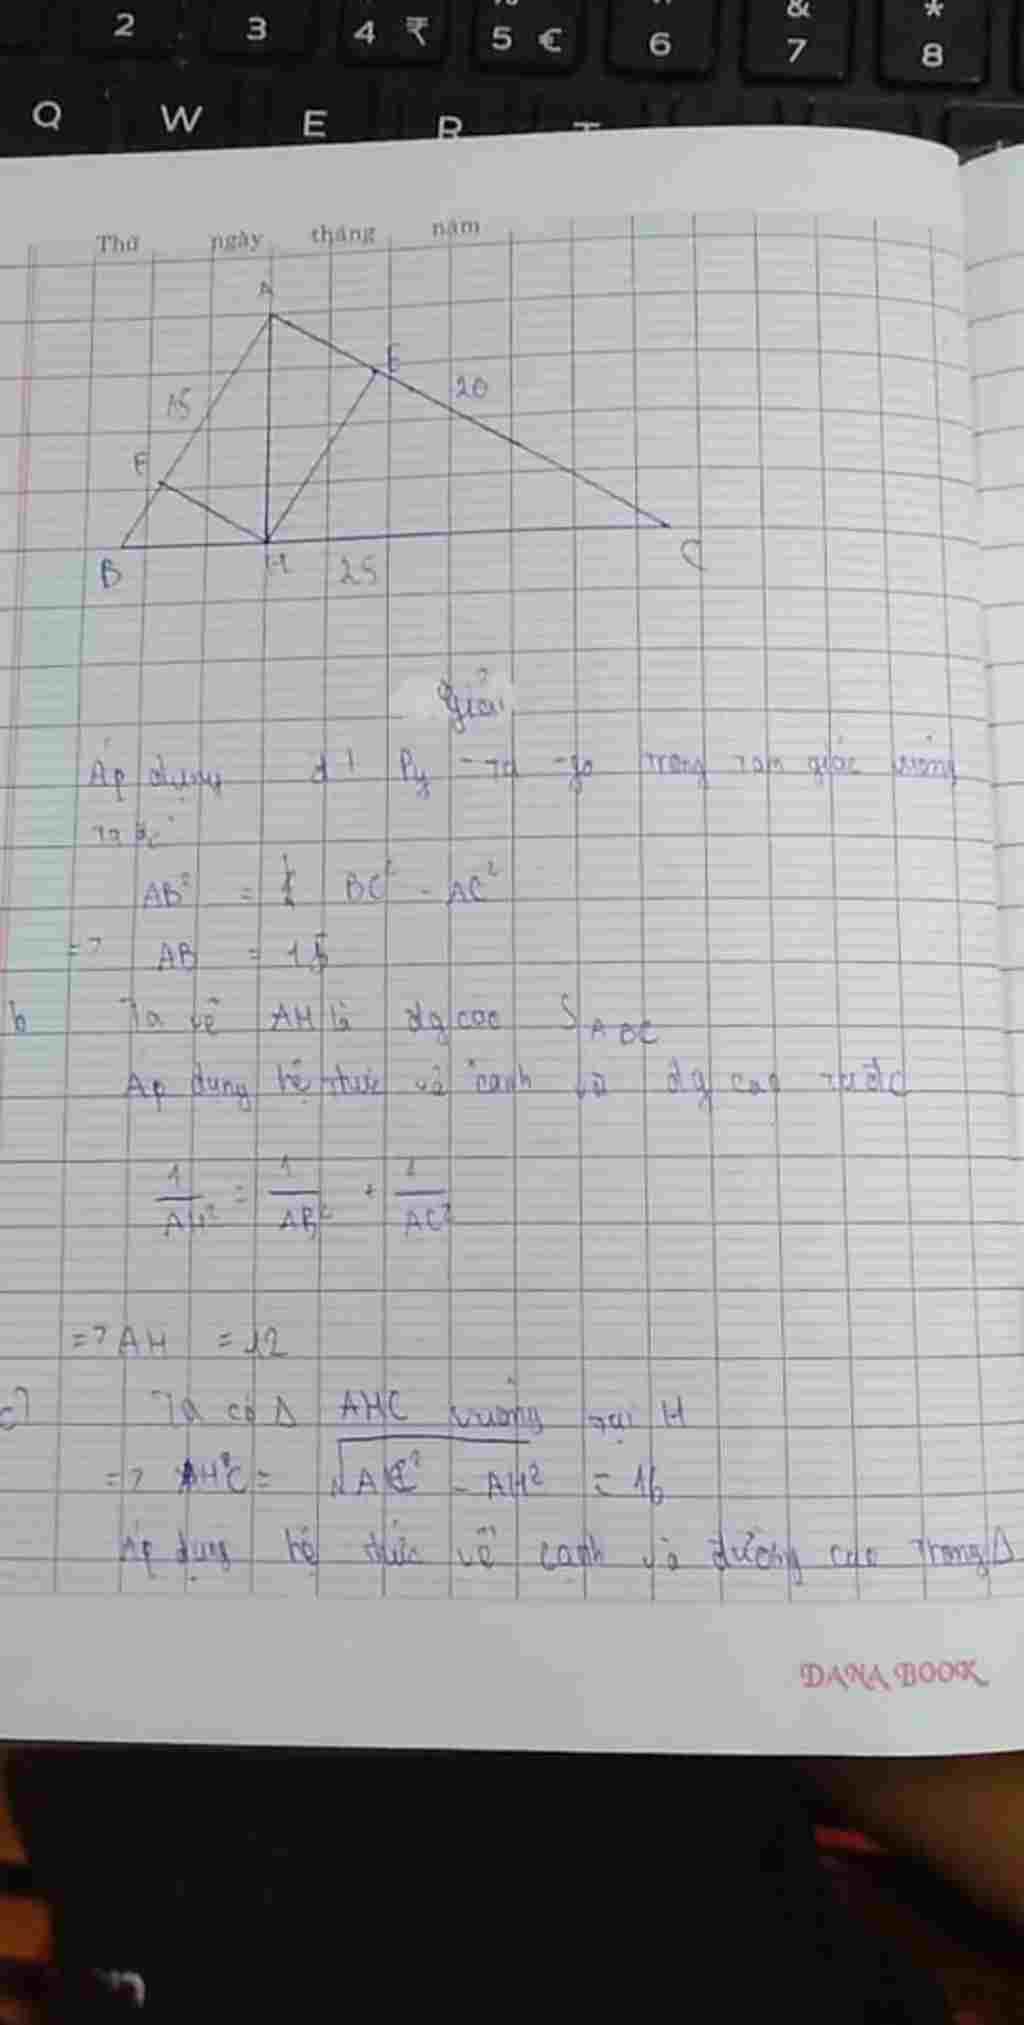 & *
2 3 4 ₹ 5 € 6 7 8
Q W E R T
Thứ ngày tháng năm
A
E
15 20
F
B H 25 C
Giải
Áp dụng đl Py - ta - go trong tam giác vuông
ta có
AB² = BC² - AC²
=> AB = 15
b Ta vẽ AH là đg cao S ABC
Áp dụng hệ thức về cạnh và đg cao
1/AH² = 1/AB² + 1/AC²
=> AH = 12
c) Ta có Δ AHC vuông tại H
=> HC = √AC² - AH² = 16
Áp dụng hệ thức về cạnh và đường cao trong Δ
DANA BOOK